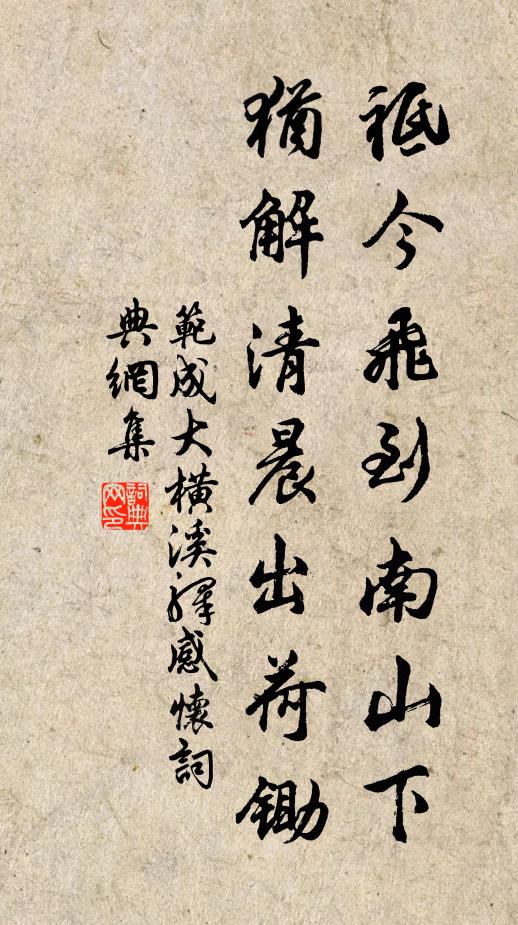 祗今飛到南山下
猶解清晨出荷鋤
範成大橫溪驛感懷詞
典網集
詞典
网印